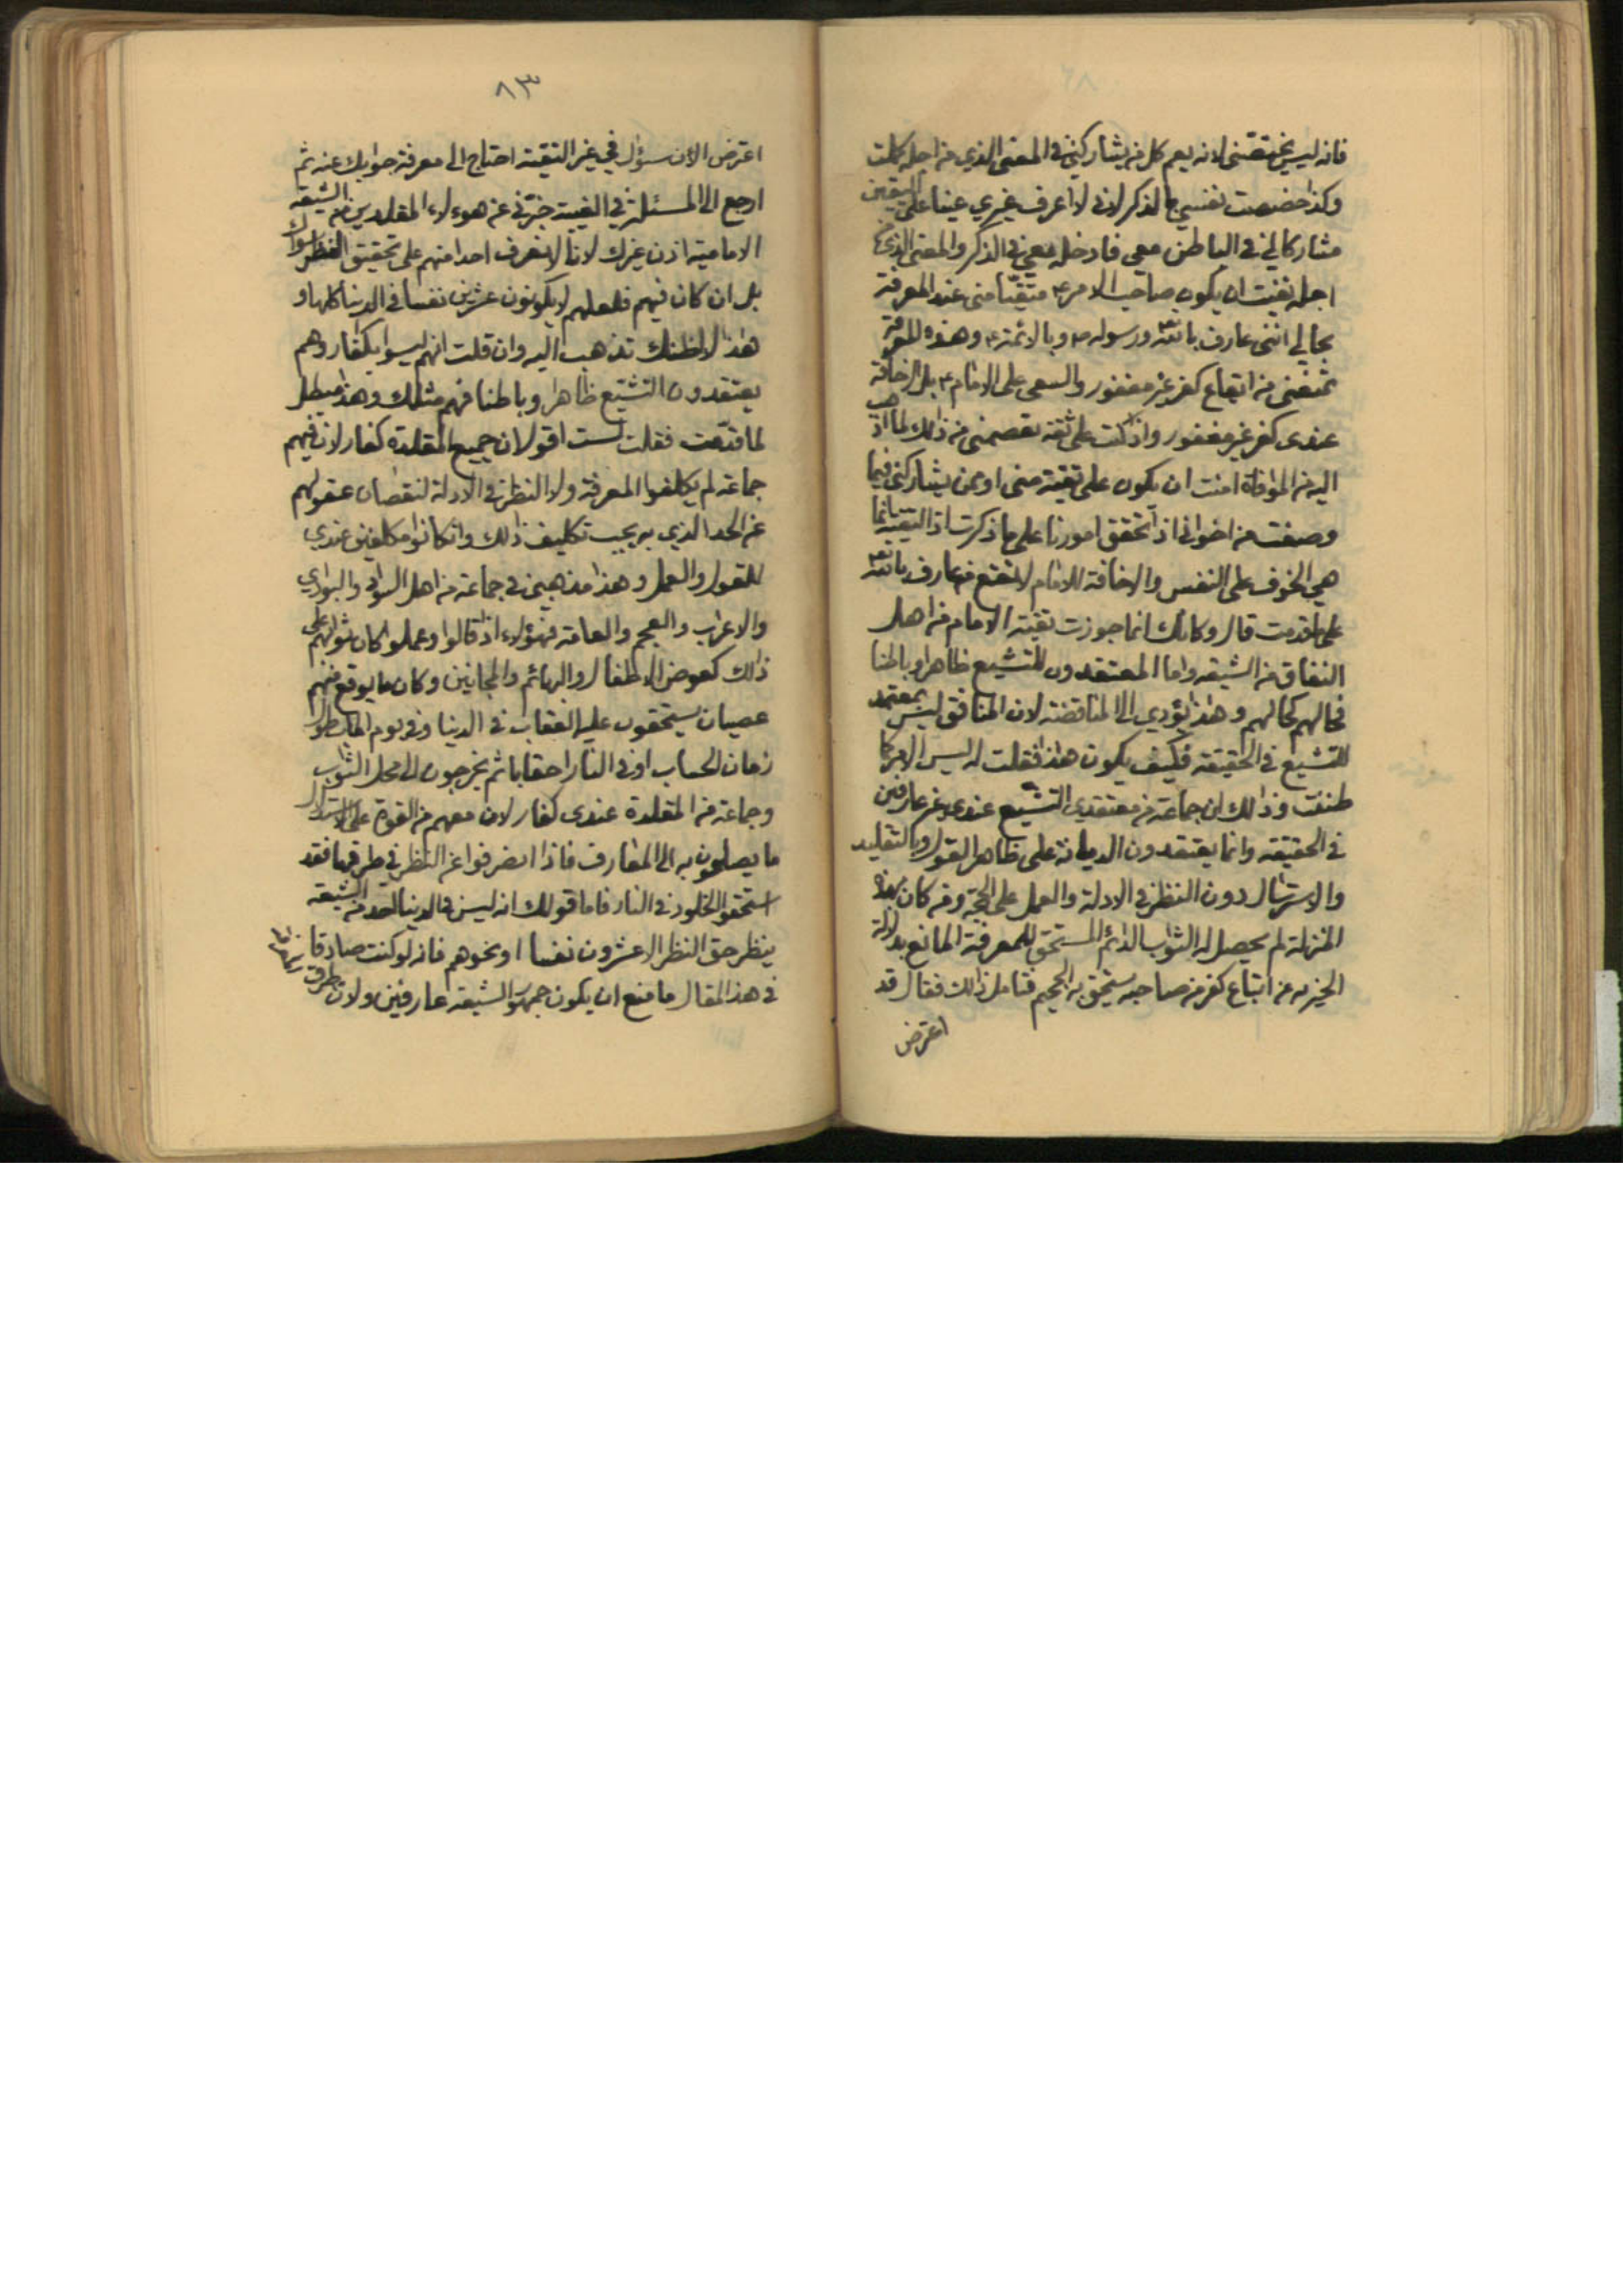 فانه ليس يختصني لانه يعم كل من يشاركني في المعنى الذي من اجله تكلمت
وكذا خصصت نفسي بالذكر لاني لا اعرف غيري عينا على اليقين
مشاركا لي في الباطن معي فادخله معي في الذكر والمعنى الذي من
اجله نفيت ان يكون صاحب الامر ع متقيا مني عند المعرفة
بحالي انني عارف بالله ورسوله ص وبالائمة ع وهذه المعرفة
تمنعني من ايقاع كفر غير مغفور والسعي على الامام ع بل اخافته
عندي كفر غير مغفور واذا كنت على ثقة تعصمني من ذلك لما اذهب
اليه في الموافاة امنت ان يكون على تقية مني او ممن يشاركني فيما
وصفت من اخواني اذ تحقق امورنا على ما ذكرت اذ التقية انما
هي الخوف على النفس والاخافة للامام لا تقع من عارف بالله
على ما قدمت قال وكانك انما جوزت تقية الامام من اهل
النفاق من الشيعة واما المعتقدون للتشيع ظاهرا وباطنا
فحالهم كحالهم وهذا يؤدي الى المناقضة لان المنافق ليس بمعتقد
للتشيع في الحقيقة فكيف يكون هذا فقلت له ليس الامر كما
ظننت وذلك ان جماعة من معتقدي التشيع عندي غير عارفين
في الحقيقة وانما يعتقدون الديانة على ظاهر القول وبالتقليد
والاسترسال دون النظر في الادلة والعمل على الحجة ومن كان بهذه
المنزلة لم يحصل له الثواب الدائم المستحق للمعرفة المانع بدلالة
الخبر به عن ايقاع كفر من صاحبه يستحق به الجحيم فتامل ذلك فقال قد
اعترض
٨٣
اعترض الان سؤال في غير التقية احتاج الى معرفة جوابك عنه ثم
ارجع الى المسئلة في الغيبة خبرني عن هؤلاء المقلدين من الشيعة
الامامية اذن غيرك لانا لا نعرف احدا منهم على تحقيق النظر سواك
بل ان كان فيهم فلعلهم لا يكونون عشرين نفسا في الدنيا كلها و
هذا لا اظنك تذهب اليه وان قلت انهم ليسوا بكفار وهم
يعتقدون التشيع ظاهرا وباطنا فهم مثلك وهذا مبطل
لما قدمت فقلت لست اقول ان جميع المقلدة كفار لان فيهم
جماعة لم يكلفوا المعرفة ولا النظر في الادلة لنقصان عقولهم
عن الحد الذي به يجب تكليف ذلك وان كانوا مكلفين عندي
للقول والعمل وهذا مذهبي في جماعة من اهل السواد والبوادي
والاعراب والعجم والعامة فهؤلاء اذا قالوا وعملوا كان ثوابهم على
ذلك كعوض الاطفال والبهائم والمجانين وكان ما يوقع منهم
عصيان يستحقون عليه العقاب في الدنيا وفي يوم الماب طول
زمان الحساب او في النار احقابا ثم يخرجون الى محل الثواب
وجماعة من المقلدة عندي كفار لان معهم من القوة على الاستدلال
ما يصلون به الى المعارف فاذا انصرفوا عن النظر في طرقها فقد
استحقوا الخلود في النار فاما قولك انه ليس في الدنيا احد من الشيعة
ينظر حق النظر الا عشرون نفسا او نحوهم فانه لو كنت صادقا
في هذا المقال ما منع ان يكون جمهور الشيعة عارفين ولان طرق